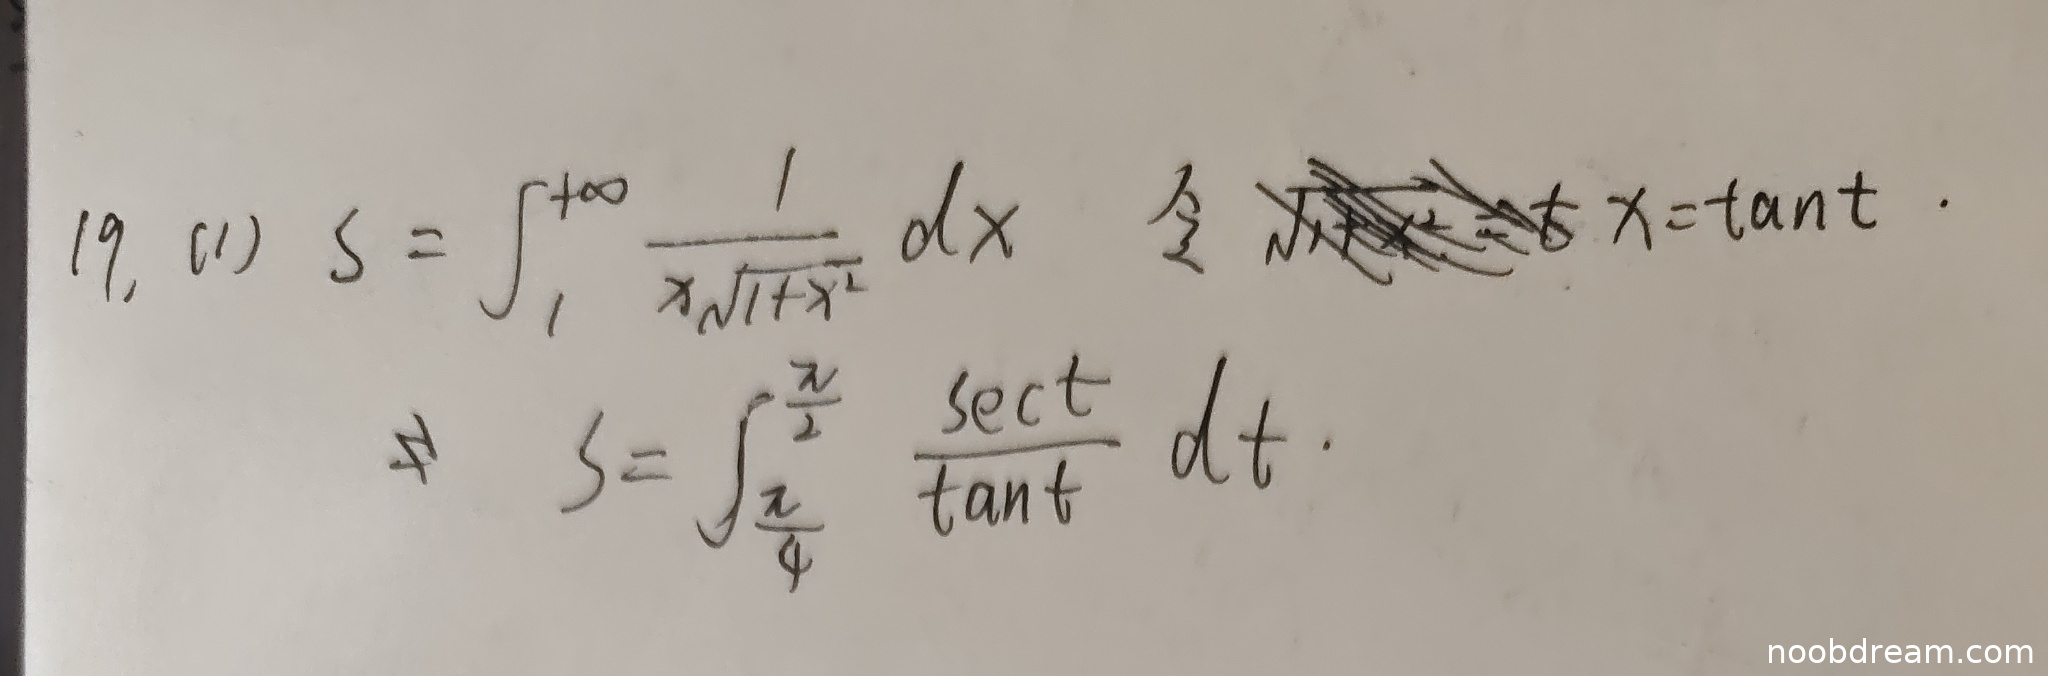 19. (1) S = ∫₁^{+∞} 1/(x√(1+x²)) dx 令 x = tan t .
S = ∫_{π/4}^{π/2} sect/tant dt .
noobdream.com